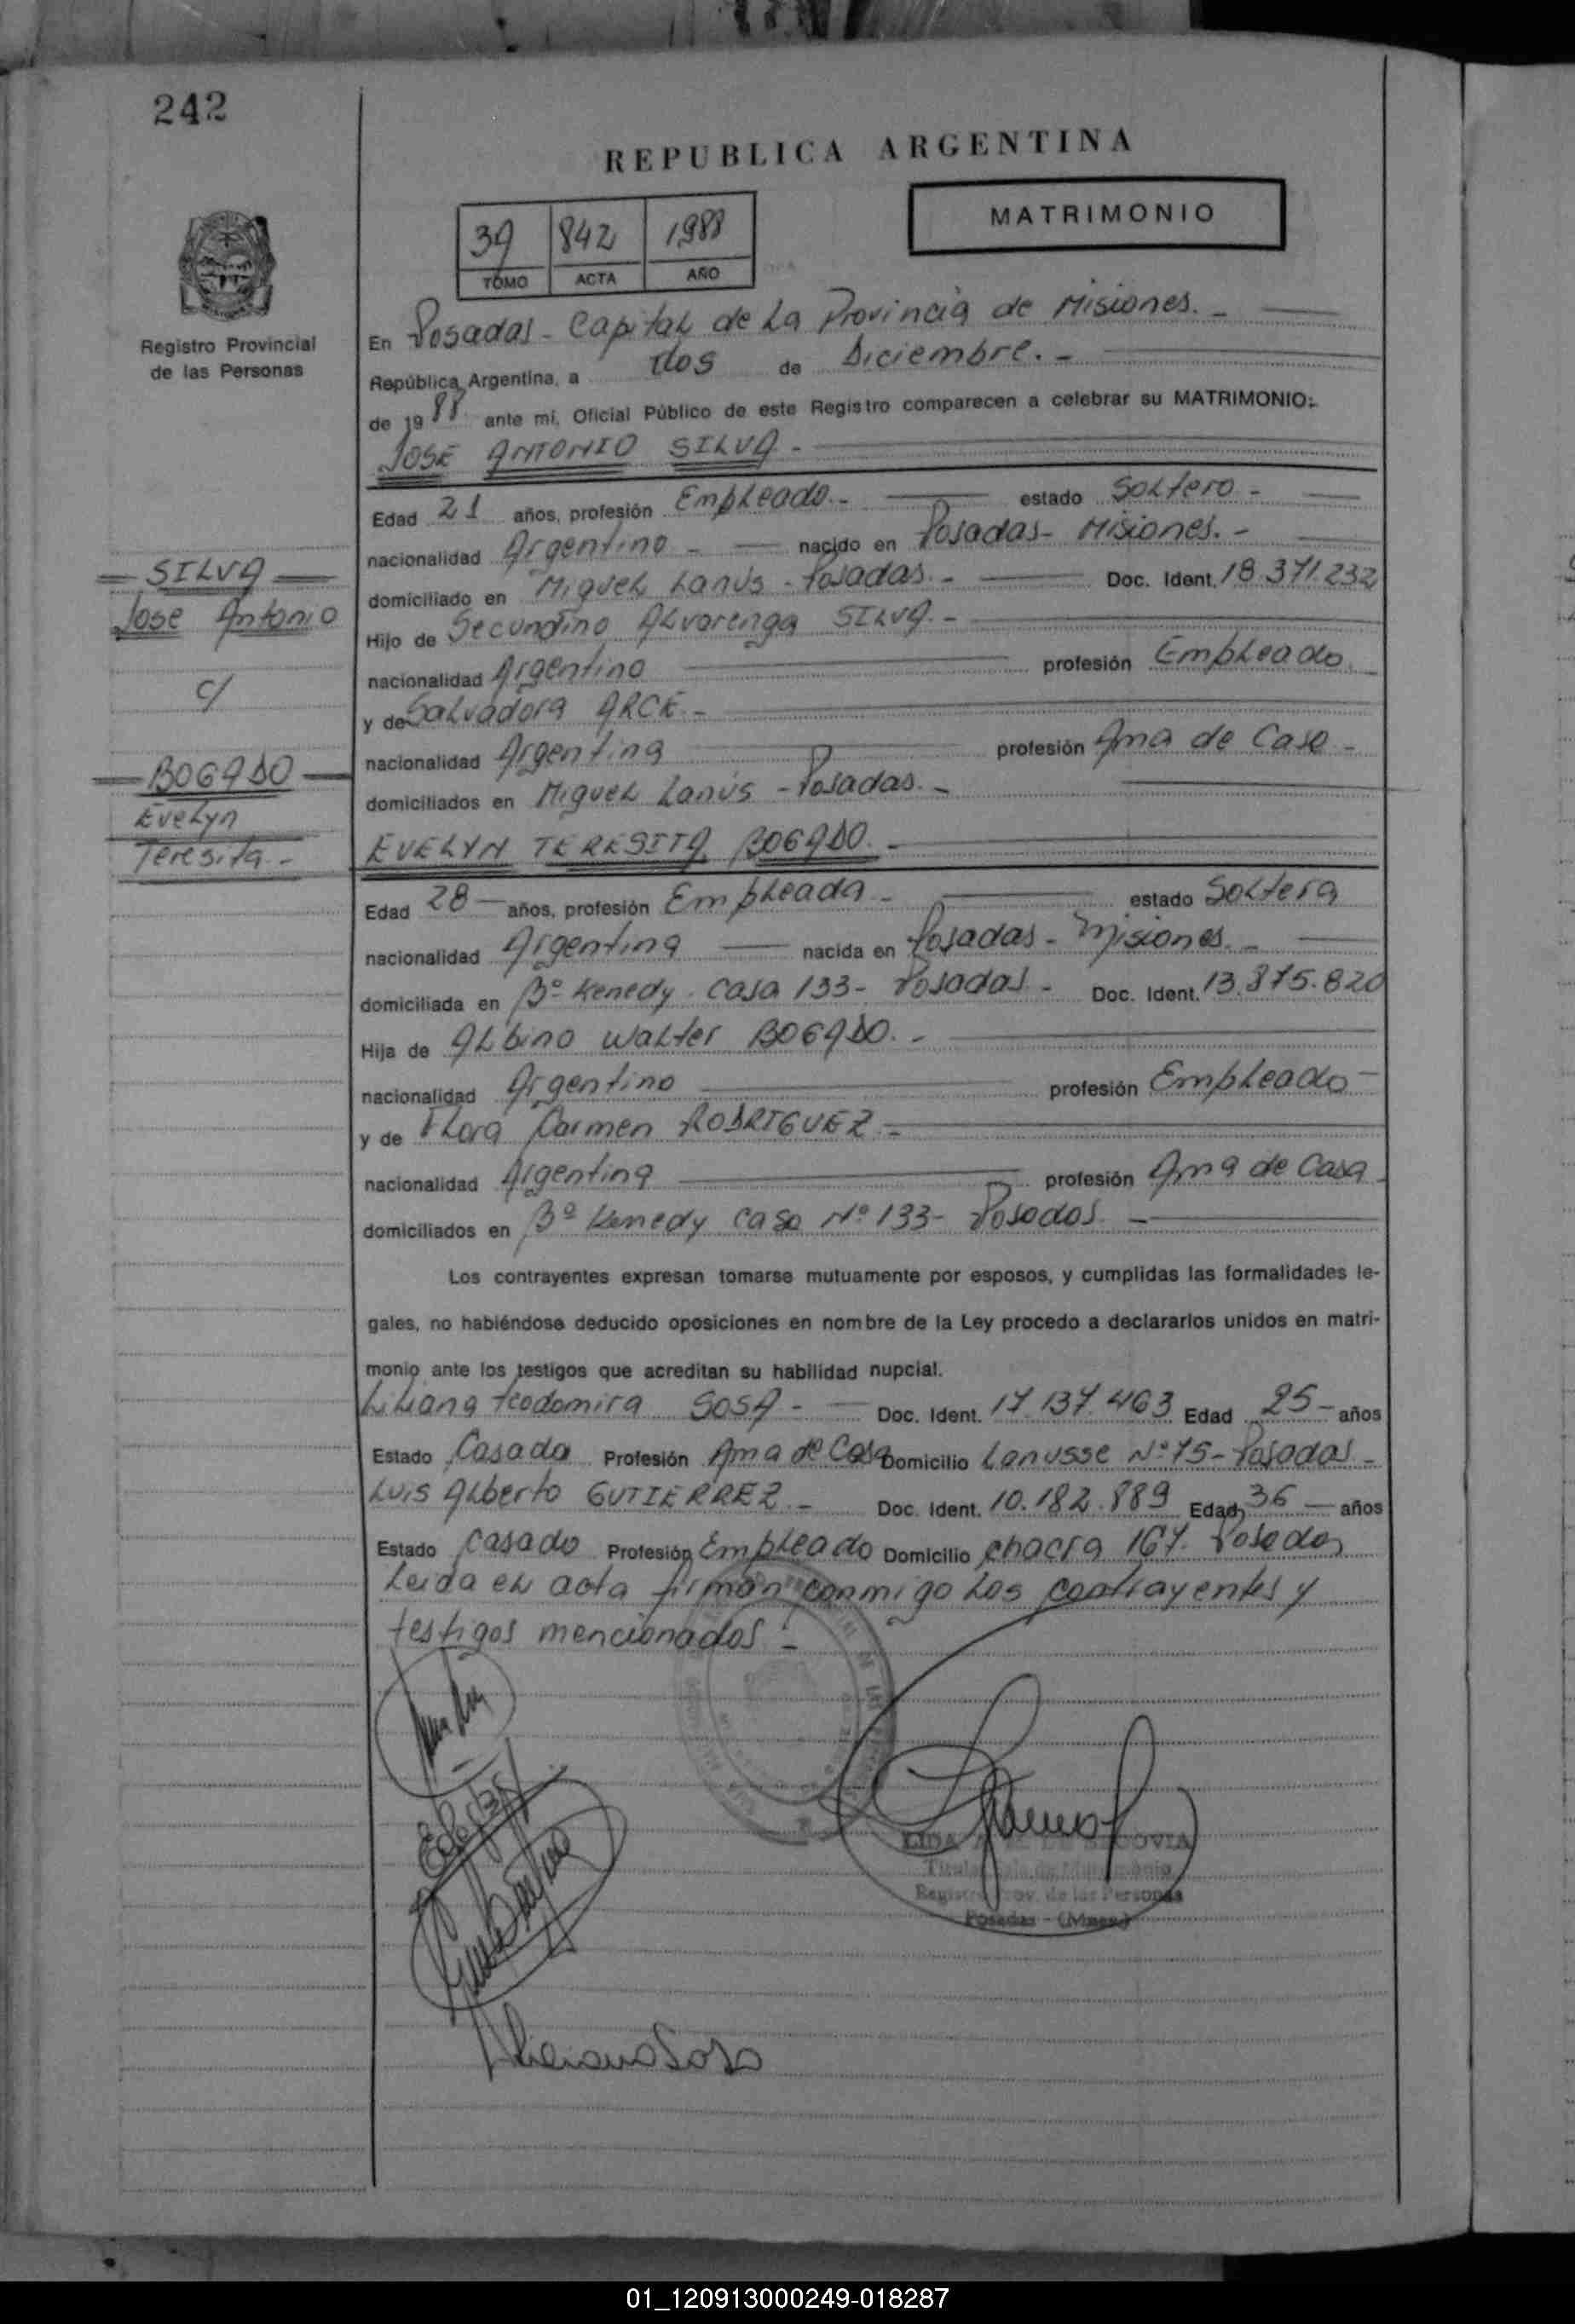 242
REPUBLICA ARGENTINA
MATRIMONIO
39 842 1988
TOMO ACTA AÑO
Registro Provincial
de las Personas
En Posadas - Capital de la Provincia de Misiones. -
República Argentina, a dos de Diciembre. -
de 1988 ante mí, Oficial Público de este Registro comparecen a celebrar su MATRIMONIO:
JOSE ANTONIO SILVA -
Edad 21 años, profesión Empleado. - estado Soltero -
nacionalidad Argentino - nacido en Posadas - Misiones. -
domiciliado en Miguel Lanús - Posadas. - Doc. Ident. 18.371.232
Hijo de Secundino Alvarenga SILVA. -
nacionalidad Argentino profesión Empleado.
y de Salvadora ARCE. -
nacionalidad Argentina profesión Ama de Casa -
domiciliados en Miguel Lanús - Posadas. -
SILVA
Jose Antonio
c/
BOGADO
Evelyn
Teresita -
EVELYN TERESITA BOGADO. -
Edad 28 - años, profesión Empleada - estado Soltera
nacionalidad Argentina nacida en Posadas - Misiones. -
domiciliada en Bº Kenedy. Casa 133 - Posadas - Doc. Ident. 13.375.820
Hija de Albino Walter BOGADO. -
nacionalidad Argentino profesión Empleado -
y de Flora Carmen RODRIGUEZ -
nacionalidad Argentina profesión Ama de Casa
domiciliados en Bº Kenedy casa Nº 133 - Posadas -
Los contrayentes expresan tomarse mutuamente por esposos, y cumplidas las formalidades le-
gales, no habiéndose deducido oposiciones en nombre de la Ley procedo a declararlos unidos en matri-
monio ante los testigos que acreditan su habilidad nupcial.
Liliana Teodomira SOSA - Doc. Ident. 17.137.463 Edad 25 - años
Estado Casada Profesión Ama de Casa Domicilio Lanusse Nº 75 - Posadas -
Luis Alberto GUTIERREZ - Doc. Ident. 10.182.889 Edad 36 - años
Estado Casado Profesión Empleado Domicilio chacra 167. Posadas
Leida el acta firman conmigo los contrayentes y
testigos mencionados -
Liliana Sosa
Registro Prov. de las Personas
Posadas - (Mnes.)
01_120913000249-018287